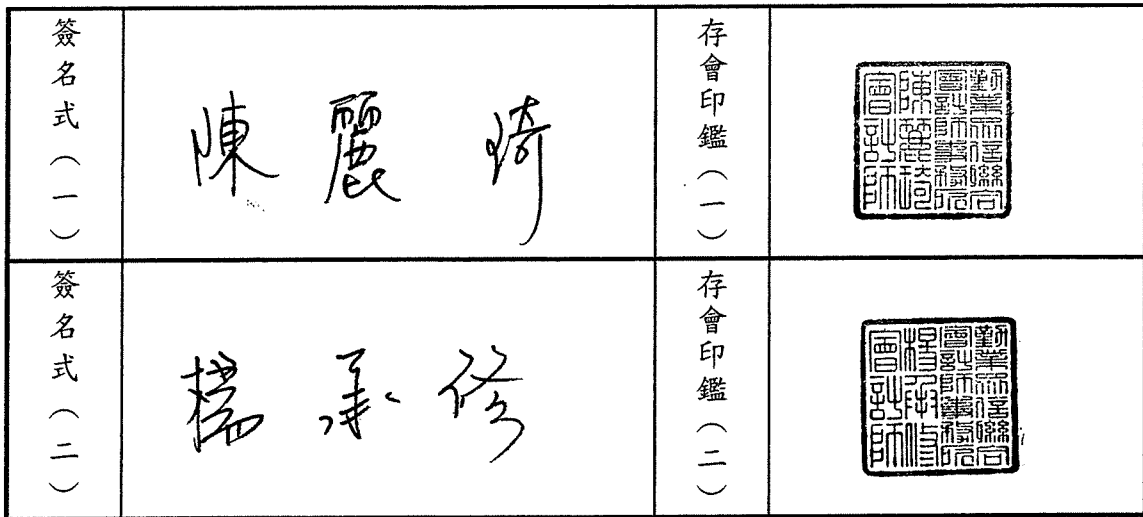 簽名式（一）
陳麗琦
存會印鑑（一）
勤業眾信聯合
會計師事務所
陳麗琦
會計師
簽名式（二）
楊承修
存會印鑑（二）
勤業眾信聯合
會計師事務所
楊承修
會計師